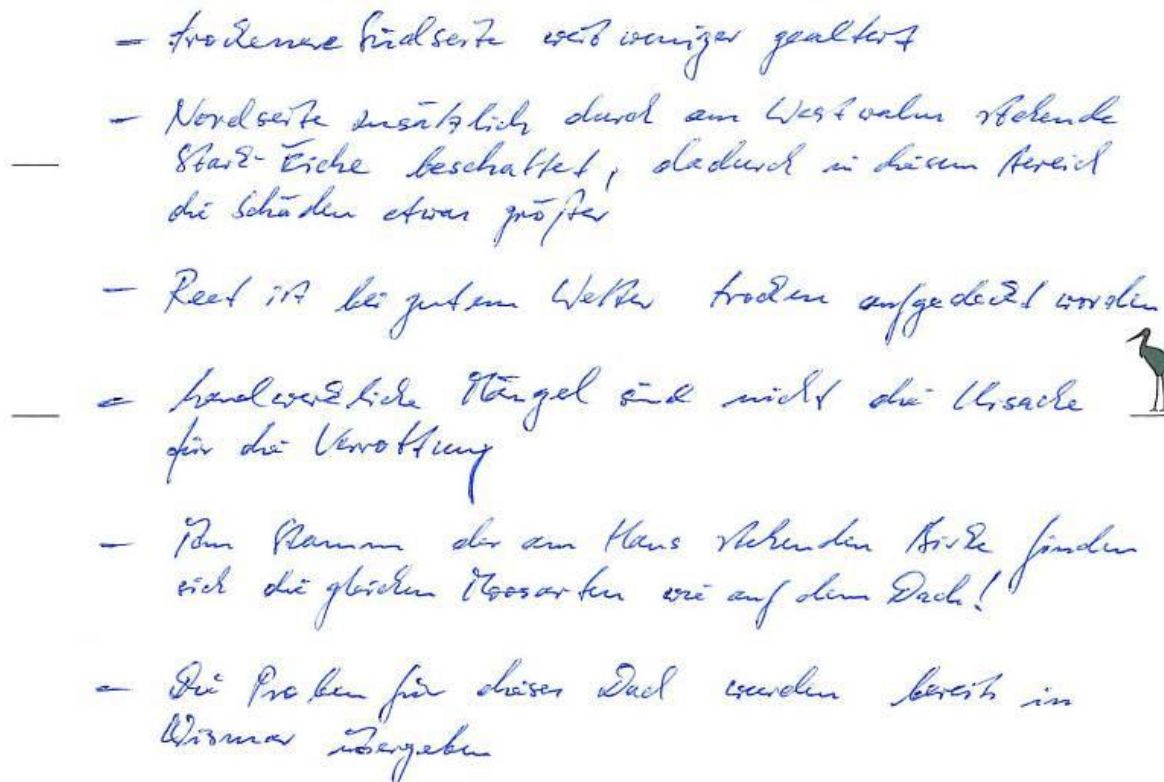 - trockenere Südseite weit weniger gealtert
- Nordseite zusätzlich durch am Westwalm stehende
Stark-Eiche beschattet, dadurch in diesem Bereich
die Schäden etwas größer
- Reet ist bei gutem Wetter trocken aufgedeckt worden
- handwerkliche Mängel sind nicht die Ursache
für die Verrottung
- Am Stamm der am Haus stehenden Birke finden
sich die gleichen Moosarten wie auf dem Dach!
- Die Proben für dieses Dach wurden bereits in
Wismar übergeben